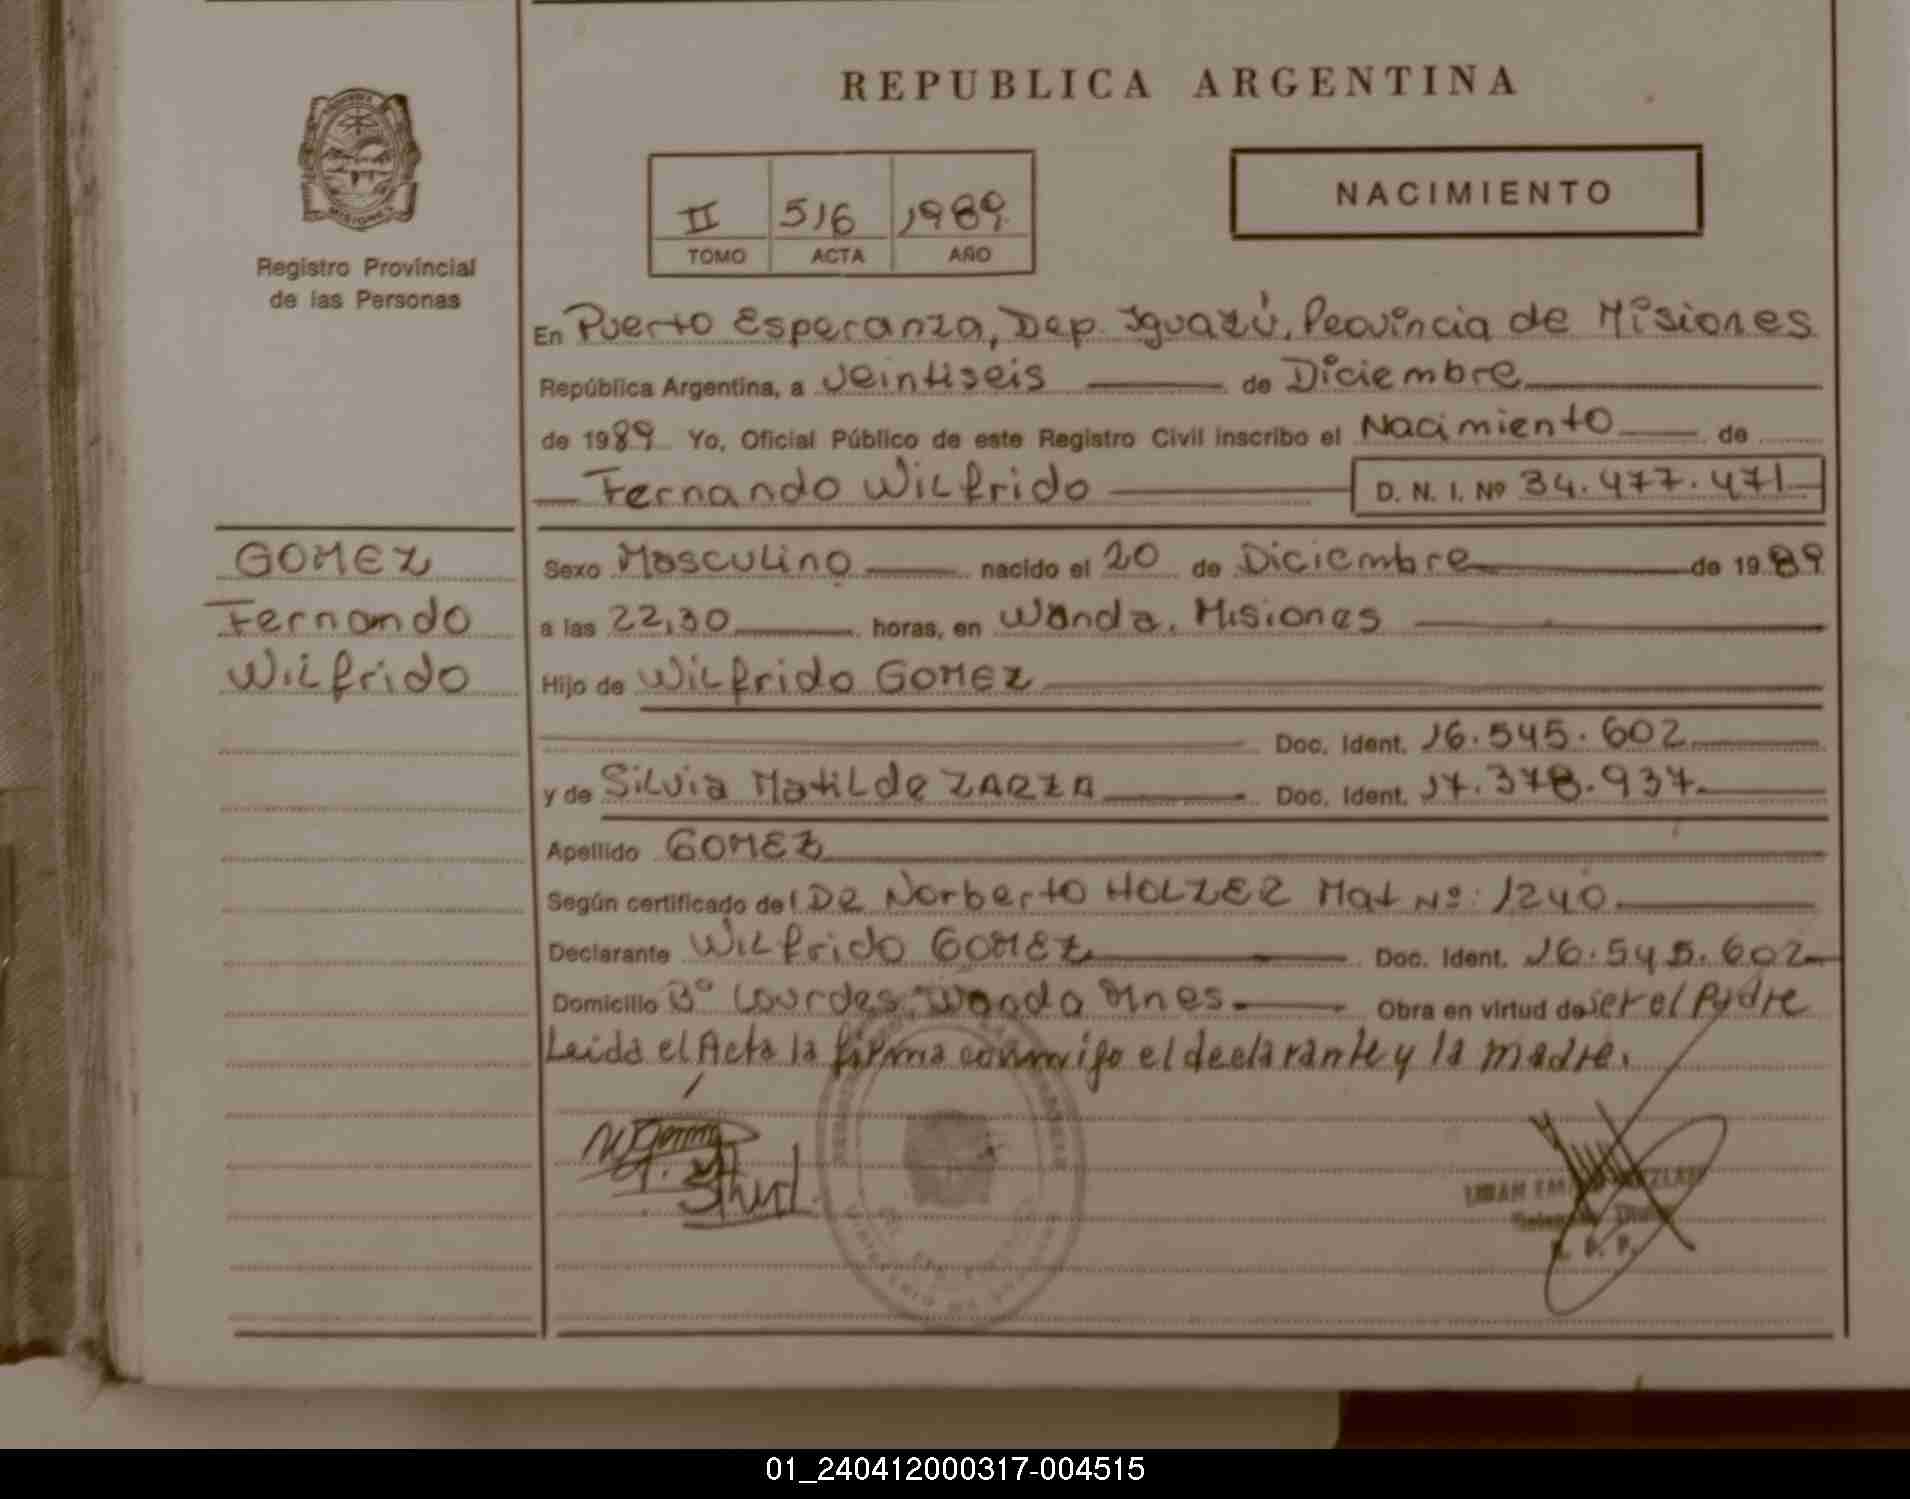 REPUBLICA ARGENTINA
NACIMIENTO
II 516 1989
TOMO ACTA AÑO
MISIONES
Registro Provincial
de las Personas
En Puerto Esperanza, Dep. Iguazú, Provincia de Misiones
República Argentina, a veintiseis de Diciembre
de 1989 Yo, Oficial Público de este Registro Civil inscribo el Nacimiento de
Fernando Wilfrido D. N. I. Nº 34.477.471
GOMEZ
Fernando
Wilfrido
Sexo Masculino nacido el 20 de Diciembre de 1989
a las 22,30 horas, en Wanda. Misiones
Hijo de Wilfrido GOMEZ
Doc. Ident. 16.545.602
y de Silvia Matilde ZARZA Doc. Ident. 17.378.937.
Apellido GOMEZ
Según certificado del DR Norberto HOLZER Mat Nº: 1240.
Declarante Wilfrido GOMEZ Doc. Ident. 16.545.602
Domicilio Bº Lourdes, Wanda Mnes. Obra en virtud de ser el Padre
Leida el Acta la firma conmigo el declarante y la madre.
01_240412000317-004515